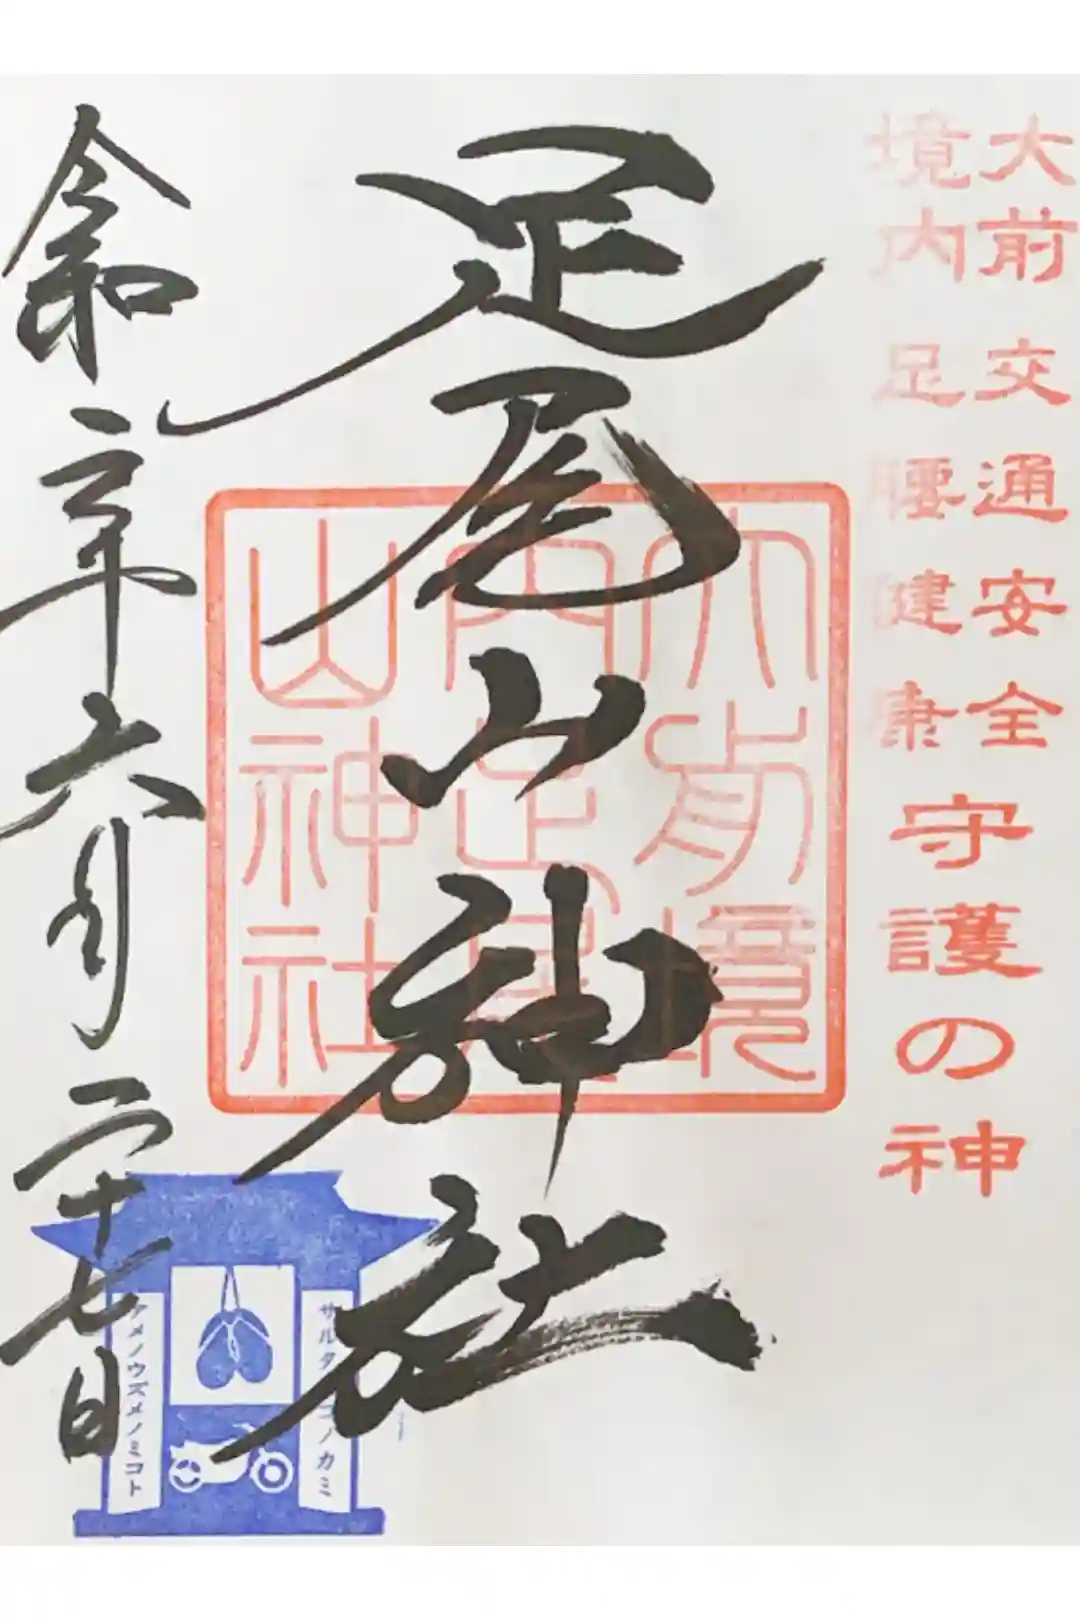 大前 交通安全
境内 足腰健康
守護の神
足尾山神社
大前境
内足尾
山神社
令和 年六月二十七日
サルタ コノカミ
アメノウズメノミコト